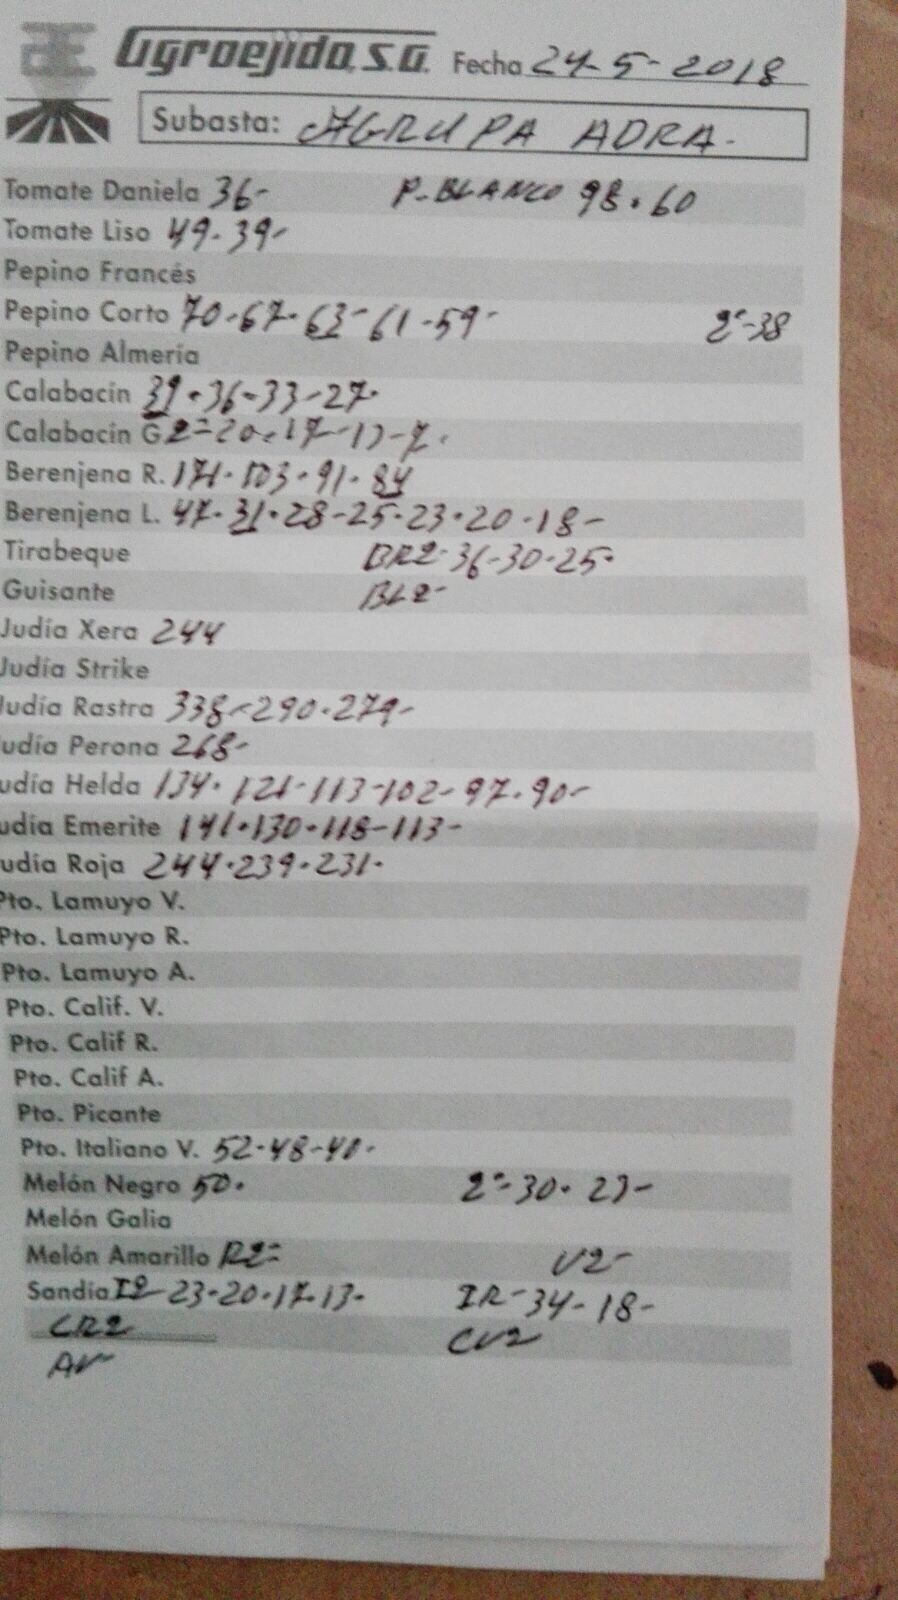 Agroejido, S.A. Fecha 24-5-2018
Subasta: AGRUPA ADRA-
Tomate Daniela 36- P. BLANCO 98.60
Tomate Liso 49-39-
Pepino Francés
Pepino Corto 70-67-63-61-59- 2ª-38
Pepino Almería
Calabacín 39-36-33-27-
Calabacín G 2=20-17-13-7-
Berenjena R. 171-103-91-84
Berenjena L. 47-31-28-25-23-20-18-
Tirabeque BR2-36-30-25-
Guisante BL2-
Judía Xera 244
Judía Strike
Judía Rastra 338-290-279-
udía Perona 268-
udía Helda 134-121-113-102-97-90-
udía Emerite 141-130-118-113-
udía Roja 244-239-231-
Pto. Lamuyo V.
Pto. Lamuyo R.
Pto. Lamuyo A.
Pto. Calif. V.
Pto. Calif R.
Pto. Calif A.
Pto. Picante
Pto. Italiano V. 52-48-40-
Melón Negro 50. 2ª-30-23-
Melón Galia
Melón Amarillo R2= V2-
Sandía I2-23-20-17-13- IR-34-18-
CR2 CV2
AV